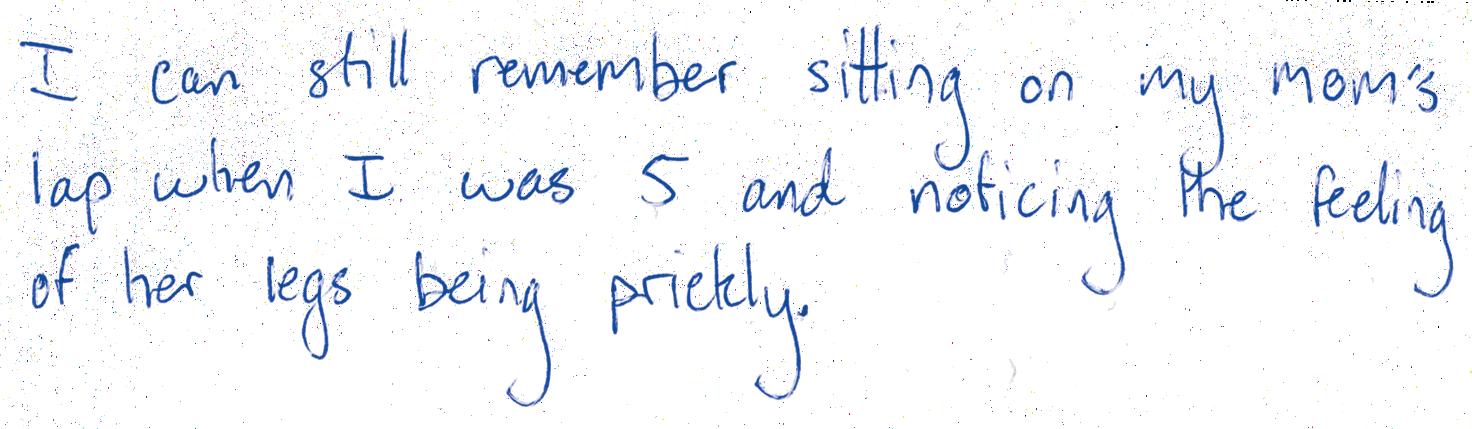 I can still remember sitting on my mom's
lap when I was 5 and noticing the feeling
of her legs being prickly.